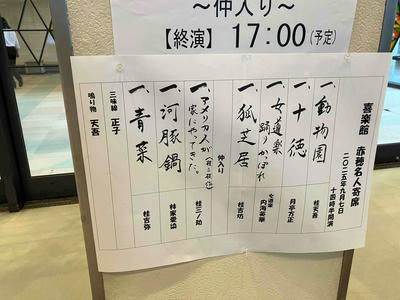 ～仲入り～
【終演】17:00(予定)
喜楽館 赤穂名人寄席
二〇二五年九月七日
十四時半開演
一、動物園 桂天吾
一、十徳 月亭方正
一、女道楽 踊りかっぽれ 女道楽 内海英華
一、狐芝居 桂吉坊
仲入り
一、アメリカ人が家にやってきた。 桂三ノ助
一、河豚鍋 林家愛染
一、青菜 桂吉弥
三味線 正子
鳴り物 天吾